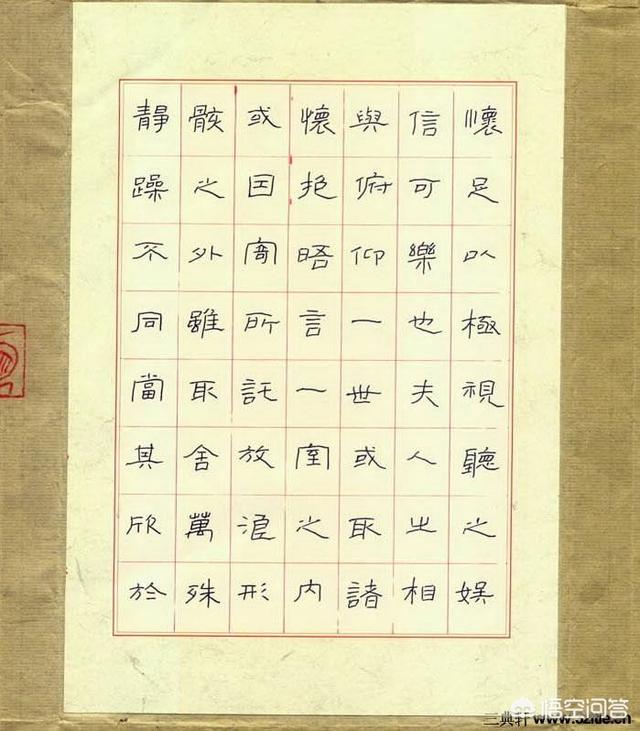 懷足以極視聽之娛
信可樂也夫人之相
與俯仰一世或取諸
懷抱晤言一室之内
或因寄所託放浪形
骸之外雖取舍萬殊
靜躁不同當其欣於
悟空问答